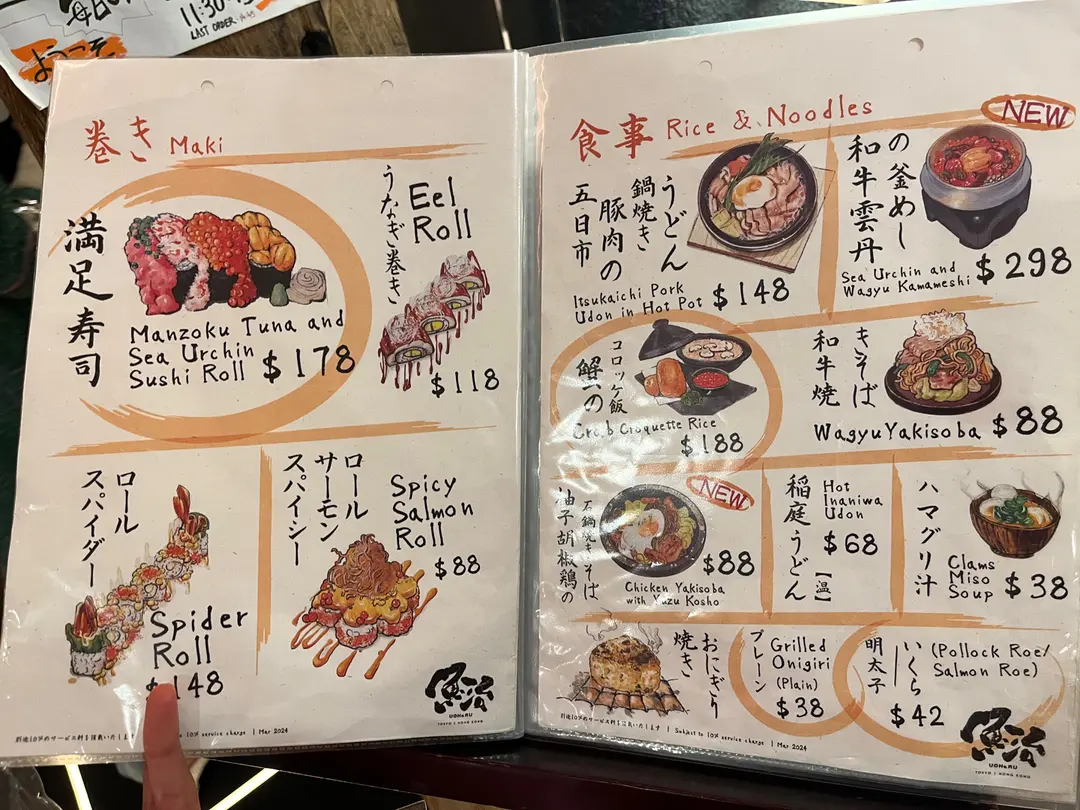 毎日
11:30-
LAST ORDER
ようこそ
巻き Maki
満足寿司
Manzoku Tuna and
Sea Urchin
Sushi Roll $178
うなぎ巻き
Eel
Roll
$118
ロール
スパイダー
Spider
Roll
$148
ロール
サーモン
スパイシー
Spicy
Salmon
Roll
$88
魚治
UOHARU
TOKYO | HONG KONG
別途10%のサービス料を頂戴いたします
10% service charge | Mar 2024
食事 Rice & Noodles
NEW
うどん
鍋焼き
豚肉の
五日市
Itsukaichi Pork
Udon in Hot Pot $148
の釜めし
和牛雲丹
Sea Urchin and
Wagyu Kamameshi $298
コロッケ飯
蟹の
Crab Croquette Rice
$188
きそば
和牛焼
Wagyu Yakisoba $88
NEW
石鍋焼きそば
油子胡椒鶏の
$88
Chicken Yakisoba
with Yuzu Kosho
稲庭うどん【温】
Hot
Inaniwa
Udon
$68
ハマグリ汁
Clams
Miso
Soup $38
おにぎり
焼き
プレーン
Grilled
Onigiri
(Plain)
$38
いくら
明太子
(Pollock Roe/
Salmon Roe)
$42
魚治
UOHARU
TOKYO | HONG KONG
別途10%のサービス料を頂戴いたします | Subject to 10% service charge | Mar 2024